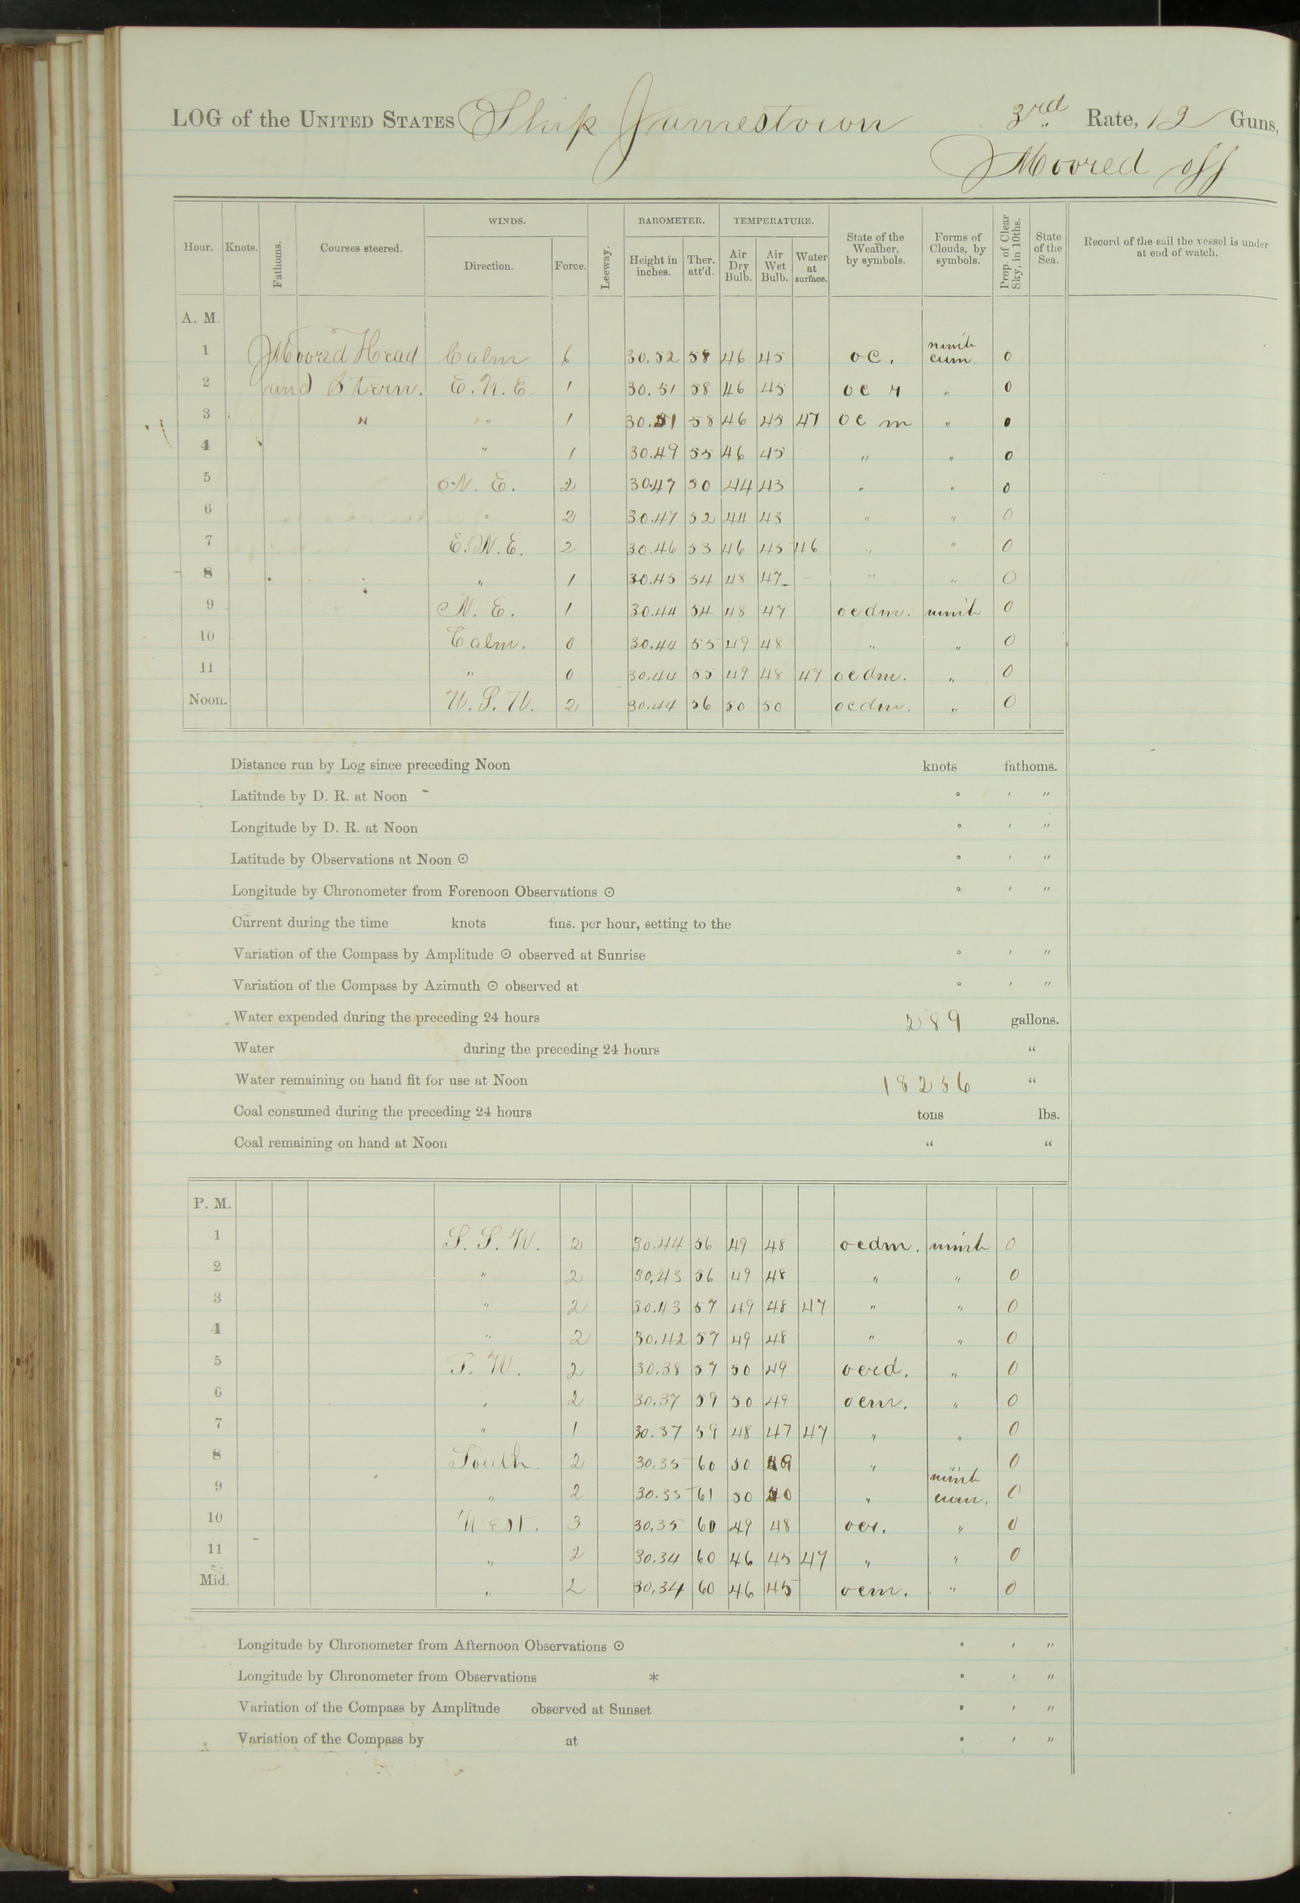 LOG of the UNITED STATES Ship Jamestown 3rd Rate, 12 Guns,
Moored off
Hour. Knots. Fathoms. Courses steered. WINDS. Direction. Force. Leeway. BAROMETER. Height in inches. Ther. att'd. TEMPERATURE. Air Dry Bulb. Air Wet Bulb. Water at surface. State of the Weather, by symbols. Forms of Clouds, by symbols. Prop. of Clear Sky, in 10ths. State of the Sea. Record of the sail the vessel is under at end of watch.
A. M.
1 Moored Head Calm 6 30.52 58 46 45 oc. nimb cum. 0
2 and Stern. E. N. E. 1 30.51 58 46 45 oc r " 0
3 " " 1 30.51 58 46 45 47 oc m " 0
4 " 1 30.49 55 46 45 " " 0
5 N. E. 2 30.47 50 44 43 " " 0
6 " 2 30.47 52 44 43 " " 0
7 E. N. E. 2 30.46 53 46 45 46 " " 0
8 " 1 30.45 54 48 47 " " 0
9 N. E. 1 30.44 54 48 47 ocdm. nimb 0
10 Calm. 0 30.44 55 49 48 " " 0
11 " 0 30.44 55 49 48 47 ocdm. " 0
Noon. W. S. W. 2 30.44 56 50 50 ocdm. " 0
Distance run by Log since preceding Noon knots fathoms.
Latitude by D. R. at Noon ° ' "
Longitude by D. R. at Noon ° ' "
Latitude by Observations at Noon ☉ ° ' "
Longitude by Chronometer from Forenoon Observations ☉ ° ' "
Current during the time knots fms. per hour, setting to the
Variation of the Compass by Amplitude ☉ observed at Sunrise ° ' "
Variation of the Compass by Azimuth ☉ observed at ° ' "
Water expended during the preceding 24 hours 289 gallons.
Water during the preceding 24 hours "
Water remaining on hand fit for use at Noon 18256 "
Coal consumed during the preceding 24 hours tons lbs.
Coal remaining on hand at Noon " "
P. M.
1 S. S. W. 2 30.44 56 49 48 ocdm. nimb 0
2 " 2 30.43 56 49 48 " " 0
3 " 2 30.43 57 49 48 47 " " 0
4 " 2 30.42 57 49 48 " " 0
5 S. W. 2 30.38 57 50 49 ocrd. " 0
6 " 2 30.37 59 50 49 ocm. " 0
7 " 1 30.37 59 48 47 47 " " 0
8 South 2 30.35 60 50 49 " " 0
9 " 2 30.35 61 50 " nimb cum. 0
10 West. 3 30.35 60 49 48 ocr. " 0
11 " 2 30.34 60 46 45 47 " " 0
Mid. " 2 30.34 60 46 45 ocm. " 0
Longitude by Chronometer from Afternoon Observations ☉ ° ' "
Longitude by Chronometer from Observations * ° ' "
Variation of the Compass by Amplitude observed at Sunset ° ' "
Variation of the Compass by at ° ' "